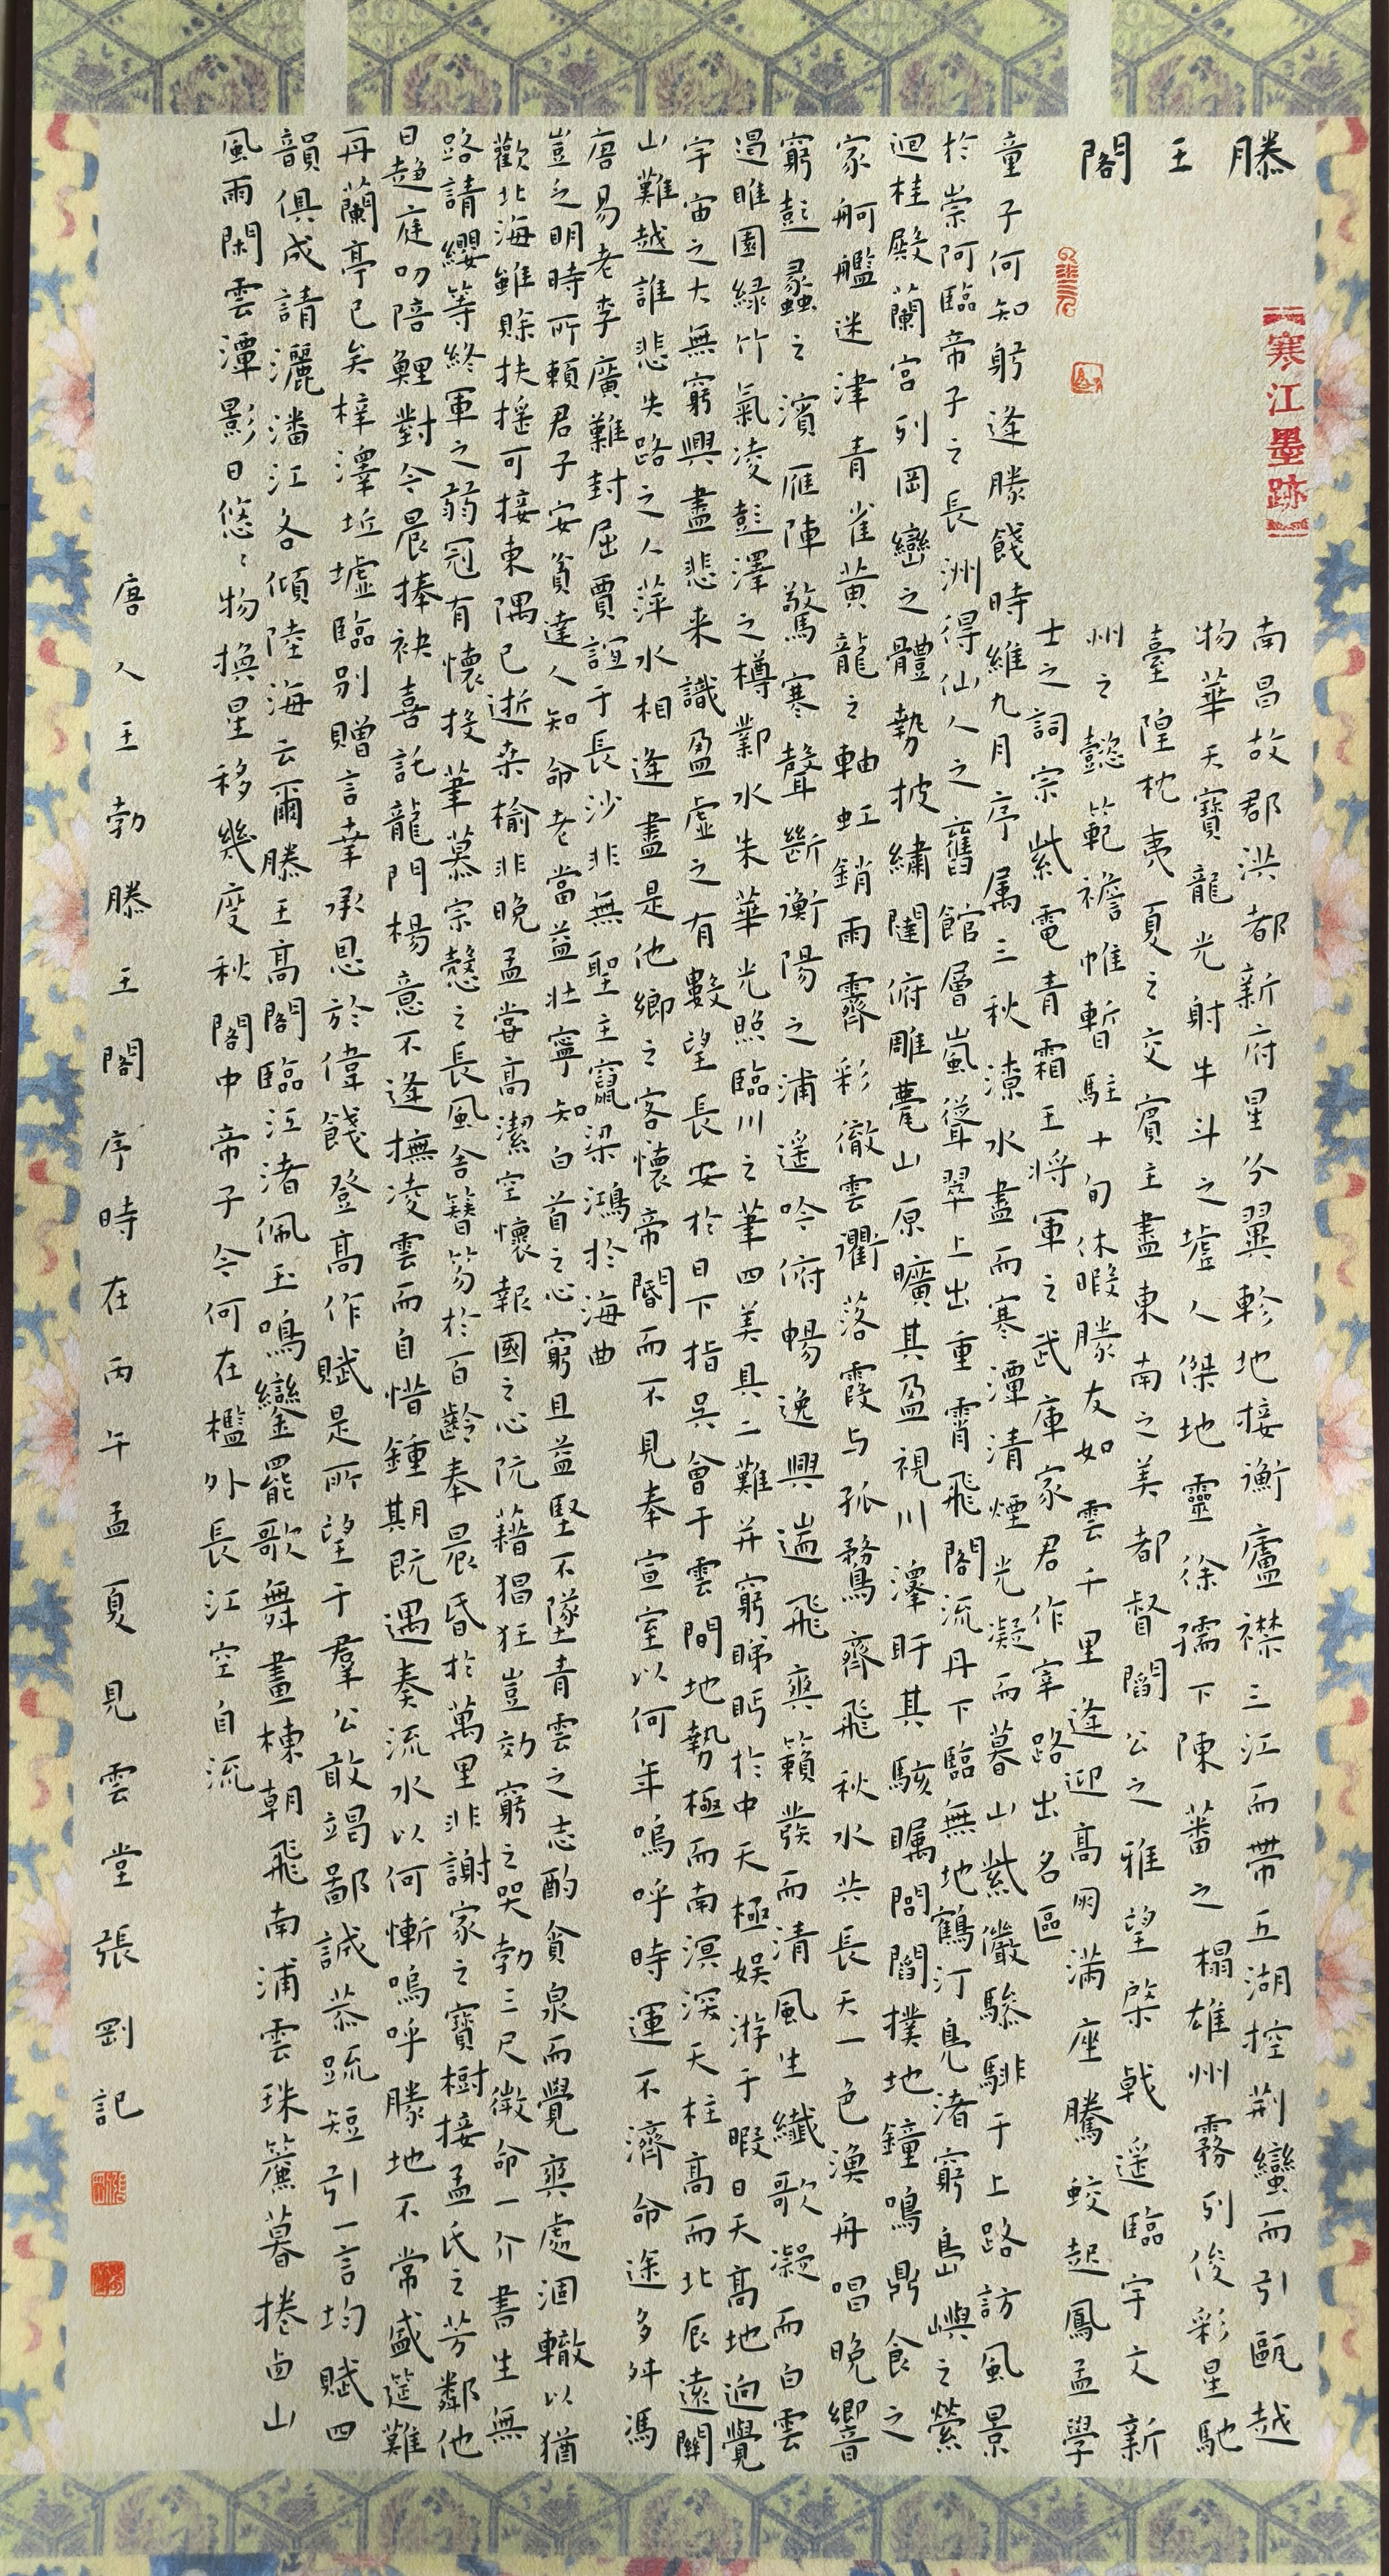 滕王閣
寒江墨跡
南昌故郡洪都新府星分翼軫地接衡廬襟三江而帶五湖控荆蠻而引甌越
物華天寶龍光射牛斗之墟人傑地靈徐孺下陳蕃之榻雄州霧列俊彩星馳
臺隍枕夷夏之交賓主盡東南之美都督閻公之雅望棨戟遥臨宇文新
州之懿範襜帷暫駐十旬休暇勝友如雲千里逢迎高朋滿座騰蛟起鳳孟學
士之詞宗紫電青霜王將軍之武庫家君作宰路出名區
童子何知躬逢勝餞時維九月序属三秋潦水盡而寒潭清煙光凝而暮山紫儼驂騑于上路訪風景
於崇阿臨帝子之長洲得仙人之舊館層嵐聳翠上出重霄飛閣流丹下臨無地鶴汀鳧渚窮島嶼之縈
迴桂殿蘭宫列岡巒之體勢披繡闥俯雕甍山原曠其盈視川澤盱其駭矚閭閻撲地鐘鳴鼎食之
家舸艦迷津青雀黄龍之軸虹銷雨霽彩徹雲衢落霞与孤鶩齊飛秋水共長天一色漁舟唱晚響
窮彭蠡之濱雁陣驚寒聲斷衡陽之浦遥吟俯暢逸興遄飛爽籟發而清風生纖歌凝而白雲
遏睢園緑竹氣凌彭澤之樽鄴水朱華光照臨川之筆四美具二難并窮睇眄於中天極娱游于暇日天高地迥覺
宇宙之大無窮興盡悲来識盈虚之有數望長安於日下指吳會于雲間地勢極而南溟深天柱高而北辰遠關
山難越誰悲失路之人萍水相逢盡是他鄉之客懷帝閽而不見奉宣室以何年嗚呼時運不濟命途多舛馮
唐易老李廣難封屈賈誼于長沙非無聖主竄梁鴻於海曲
豈乏明時所賴君子安貧達人知命老當益壯寧知白首之心窮且益堅不墜青雲之志酌貪泉而覺爽處涸轍以猶
歡北海雖賒扶摇可接東隅已逝桑榆非晚孟嘗高潔空懷報國之心阮藉猖狂豈効窮之哭勃三尺微命一介書生無
路請纓等終軍之弱冠有懷投筆慕宗慤之長風舍簪笏於百齡奉晨昏於萬里非謝家之寶樹接孟氏之芳鄰他
日趨庭叨陪鯉對今晨捧袂喜託龍門楊意不逢撫凌雲而自惜鍾期既遇奏流水以何慚嗚呼勝地不常盛筵難
再蘭亭已矣梓澤坵墟臨别贈言幸承恩於偉餞登高作賦是所望于羣公敢竭鄙誠恭疏短引一言均賦四
韻俱成請灑潘江各傾陸海云爾滕王高閣臨江渚佩玉鳴鑾罷歌舞畫棟朝飛南浦雲珠簾暮捲西山
風雨閑雲潭影日悠〻物換星移幾度秋閣中帝子今何在檻外長江空自流
唐人王勃滕王閣序時在丙午孟夏見雲堂張劉記